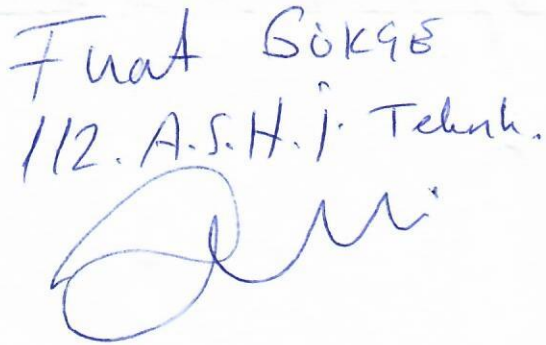 Fuat GÖKÇE
112. A.S.H.İ. Teknk.